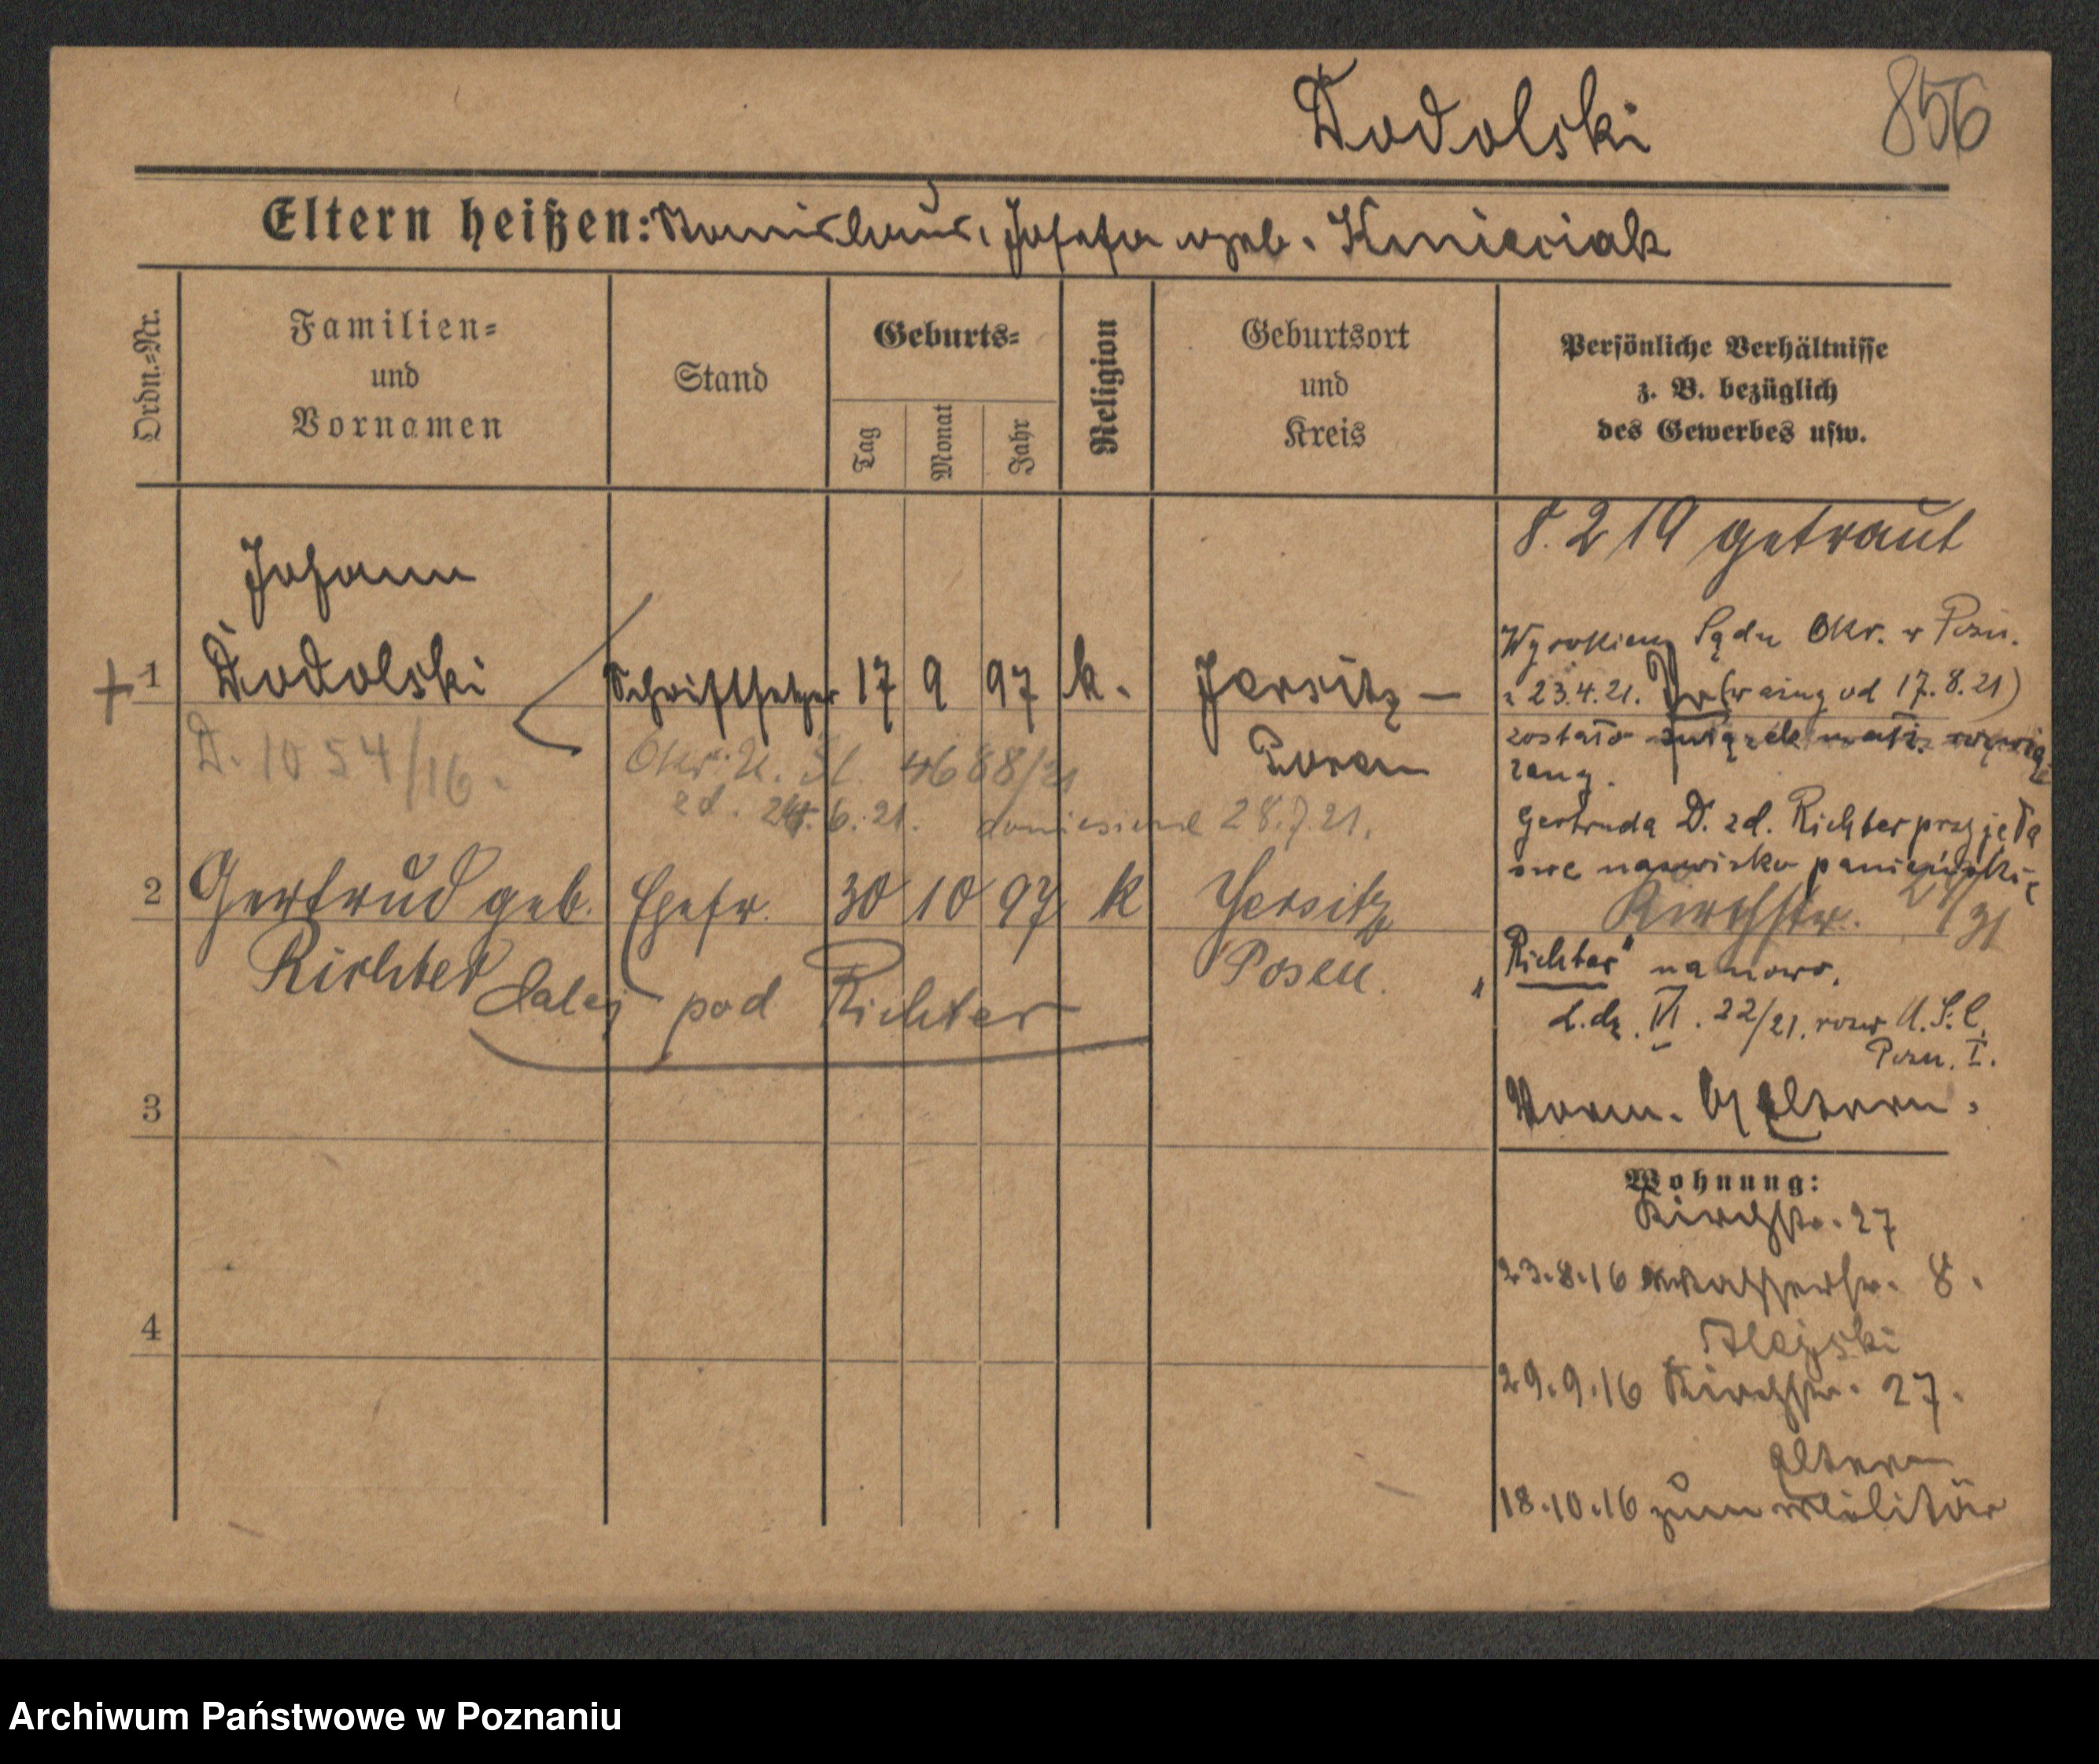 Dodolski
856
Eltern heißen: Stanislaus, Josefa geb. Kmieciak
Ordn.-Nr.
Familien-
und
Vornamen
Stand
Geburts-
Tag
Monat
Jahr
Religion
Geburtsort
und
Kreis
Persönliche Verhältnisse
z. B. bezüglich
des Gewerbes usw.
8. 2 19 getraut
Johann
+ 1 Dodolski Schriftsetzer 17 9 97 k. Jersitz —
Posen
D. 1054/16.
4688/21
zd. 24. 6. 21. doniesienie 28.7.21.
Wyrokiem Sądu Okr. w Pozn.
z 23.4.21. od 17.8.21)
zostało związek małż. rozwią-
zany.
Gertruda D. zd. Richter przyjęła
swe nazwisko panieńskie
Kirchstr.
"Richter" na nowo.
L.dz. VI. 22/21. U.S.C.
Pozn. I.
2 Gertrud geb. Ehefr. 30 10 97 k Jersitz
Richter Posen.
dalej pod Richter
Vorm. Eltern.
3
4
Wohnung:
Kirchstr. 27
23.8.16 Wasserstr. 8.
29.9.16 Kirchstr. 27.
Eltern
18.10.16 zum Militär
Archiwum Państwowe w Poznaniu